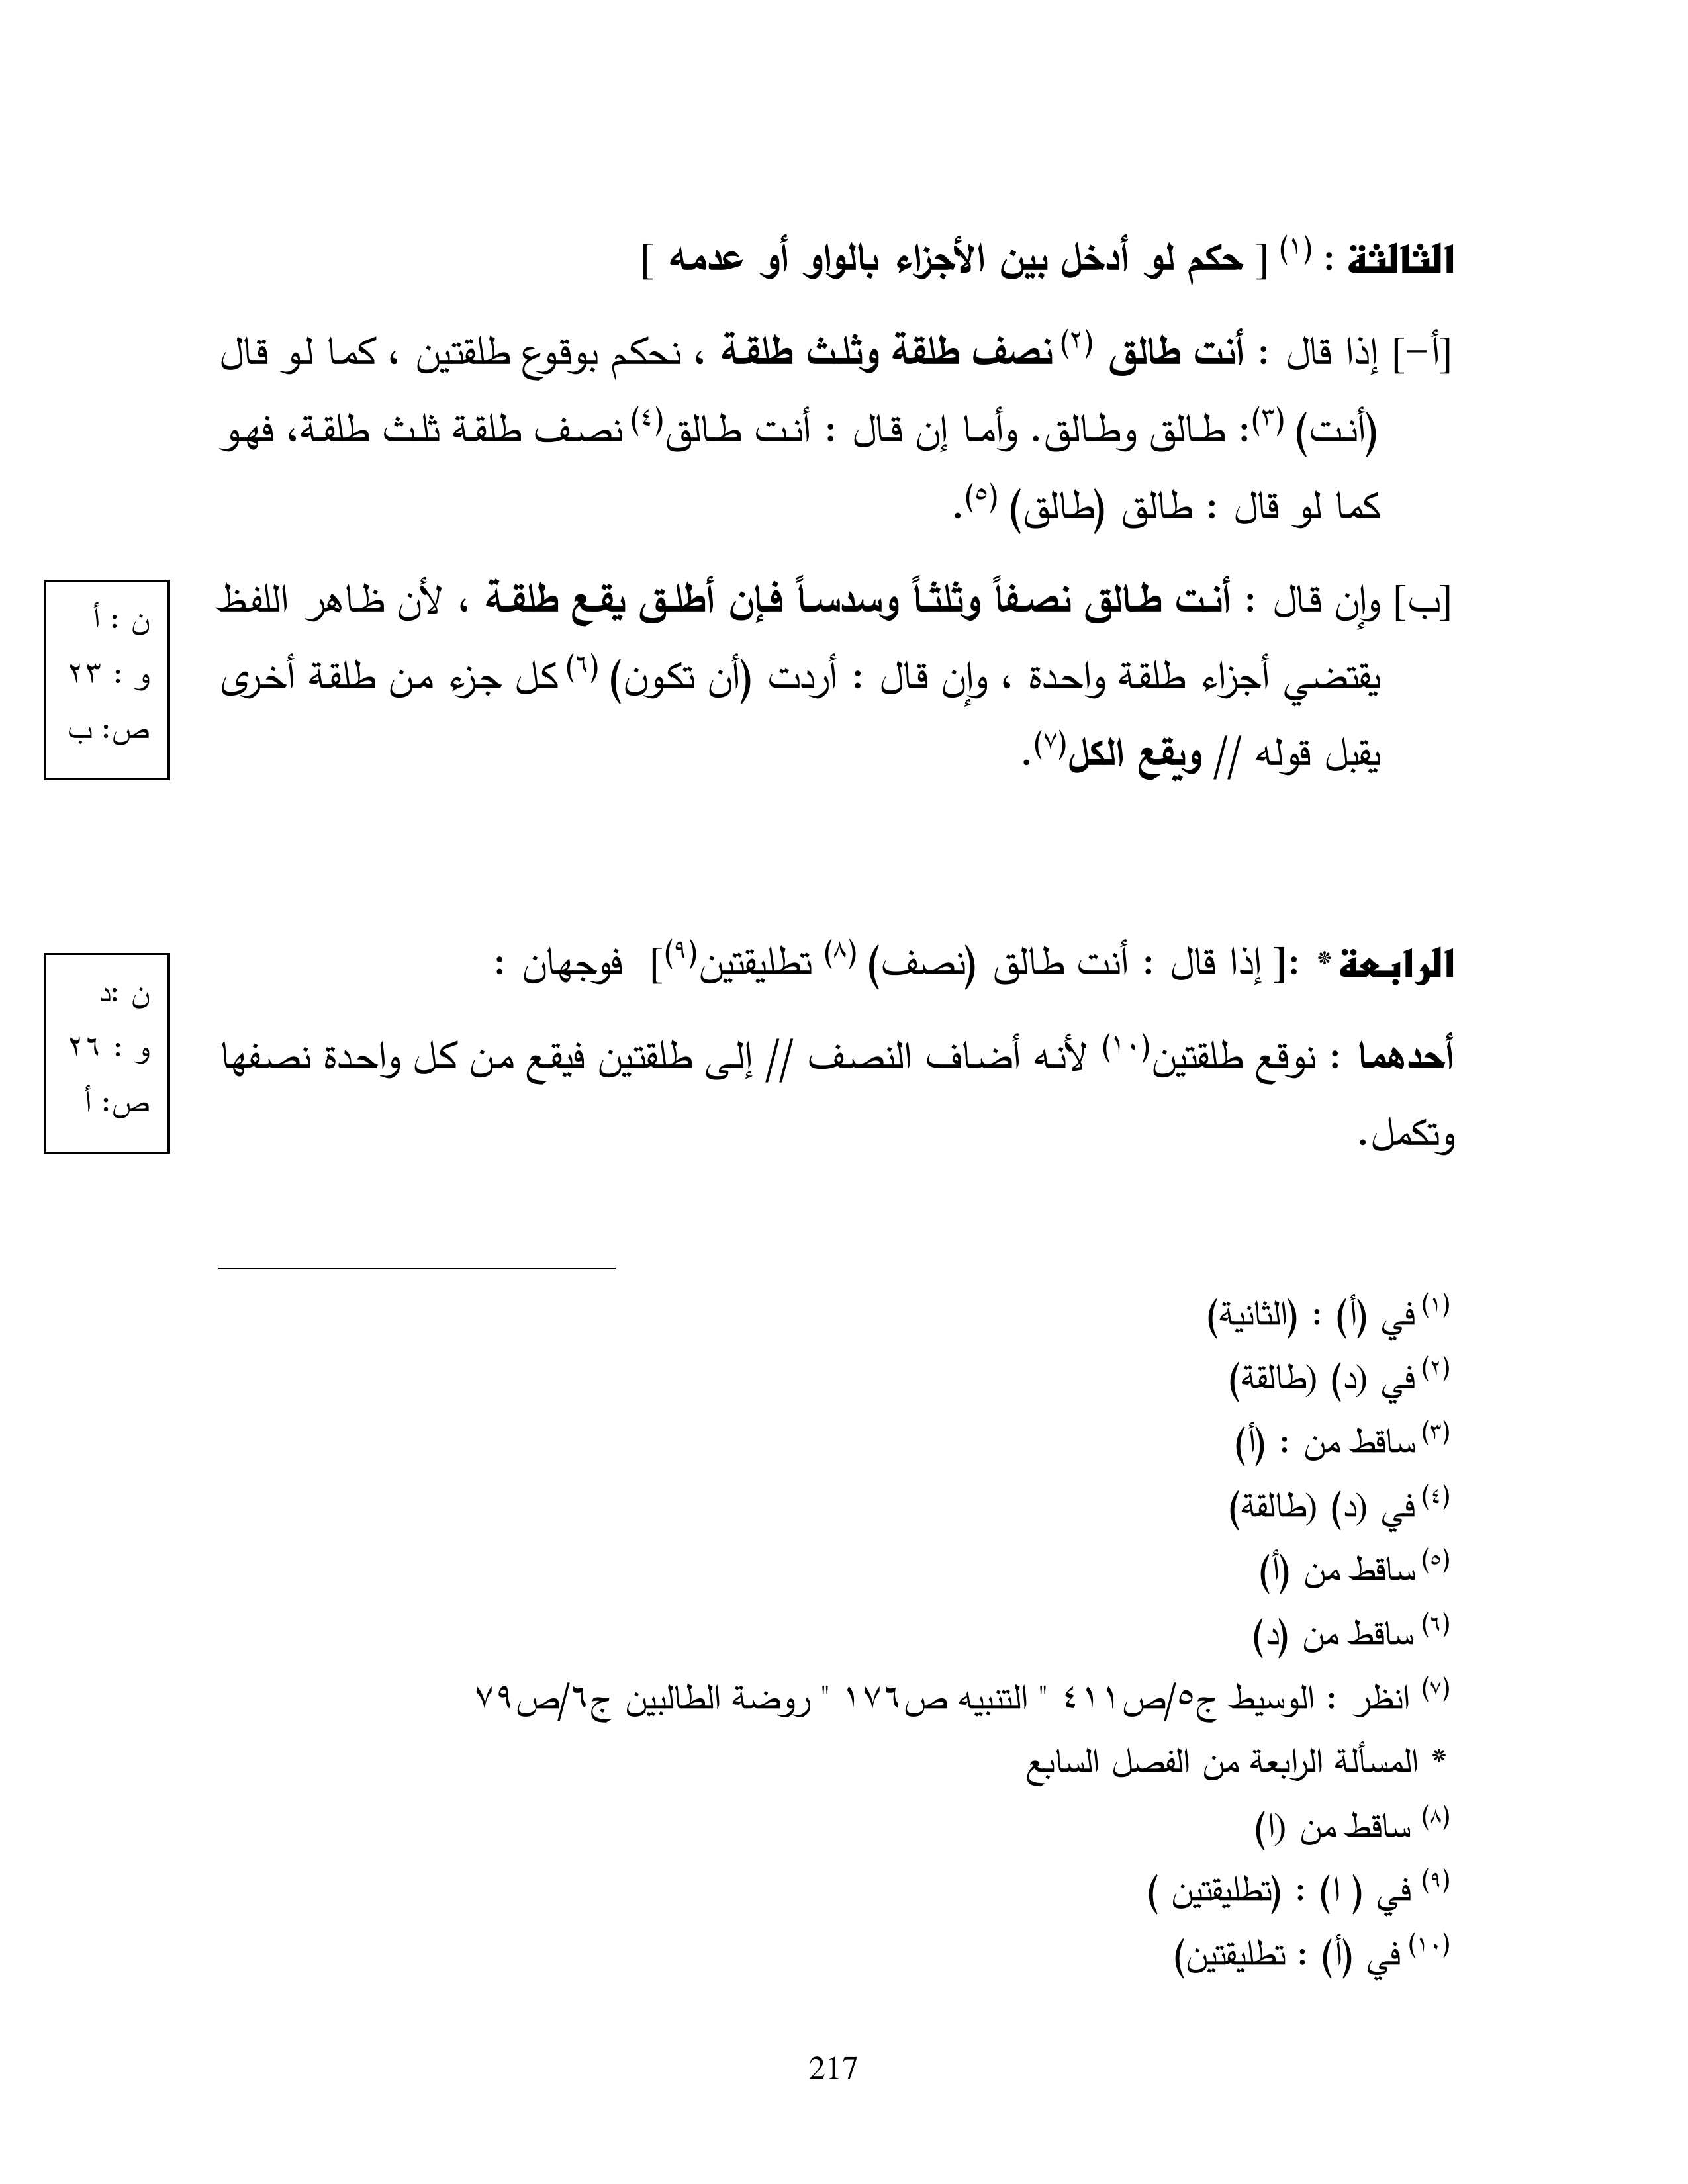 الثالثة : (١) [ حكم لو أدخل بين الأجزاء بالواو أو عدمه ]
[أ-] إذا قال : أنت طالق (٢) نصف طلقة وثلث طلقة ، نحكم بوقوع طلقتين ، كما لو قال
(أنت) (٣): طالق وطالق. وأما إن قال : أنت طالق(٤) نصف طلقة ثلث طلقة، فهو
كما لو قال : طالق (طالق) (٥).
[ب] وإن قال : أنت طالق نصفاً وثلثاً وسدساً فإن أطلق يقع طلقة ، لأن ظاهر اللفظ
يقتضي أجزاء طلقة واحدة ، وإن قال : أردت (أن تكون) (٦) كل جزء من طلقة أخرى
يقبل قوله // ويقع الكل(٧).
ن : أ
و : ٢٣
ص: ب
الرابعة* :[ إذا قال : أنت طالق (نصف) (٨) تطليقتين(٩)] فوجهان :
أحدهما : نوقع طلقتين(١٠) لأنه أضاف النصف // إلى طلقتين فيقع من كل واحدة نصفها
وتكمل.
ن :د
و : ٢٦
ص: أ
(١) في (أ) : (الثانية)
(٢) في (د) (طالقة)
(٣) ساقط من : (أ)
(٤) في (د) (طالقة)
(٥) ساقط من (أ)
(٦) ساقط من (د)
(٧) انظر : الوسيط ج٥/ص٤١١ " التنبيه ص١٧٦ " روضة الطالبين ج٦/ص٧٩
* المسألة الرابعة من الفصل السابع
(٨) ساقط من (ا)
(٩) في ( ا) : (تطليقتين )
(١٠) في (أ) : تطليقتين)
217